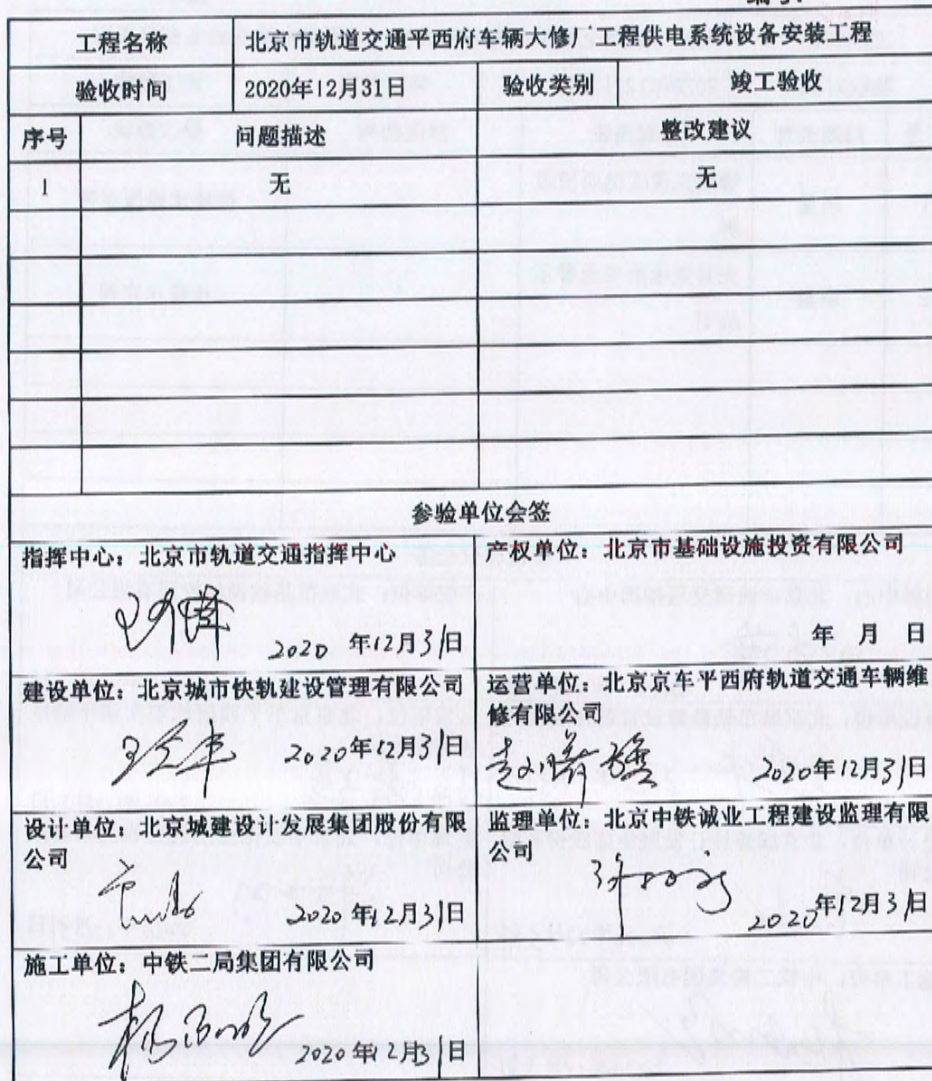 工程名称 北京市轨道交通平西府车辆大修厂工程供电系统设备安装工程
验收时间 2020年12月31日 验收类别 竣工验收
序号 问题描述 整改建议
1 无 无
参验单位会签
指挥中心：北京市轨道交通指挥中心
2020年12月31日
产权单位：北京市基础设施投资有限公司
年 月 日
建设单位：北京城市快轨建设管理有限公司
2020年12月31日
运营单位：北京京车平西府轨道交通车辆维
修有限公司
2020年12月31日
设计单位：北京城建设计发展集团股份有限
公司
2020年12月31日
监理单位：北京中铁诚业工程建设监理有限
公司
2020年12月31日
施工单位：中铁二局集团有限公司
2020年12月31日